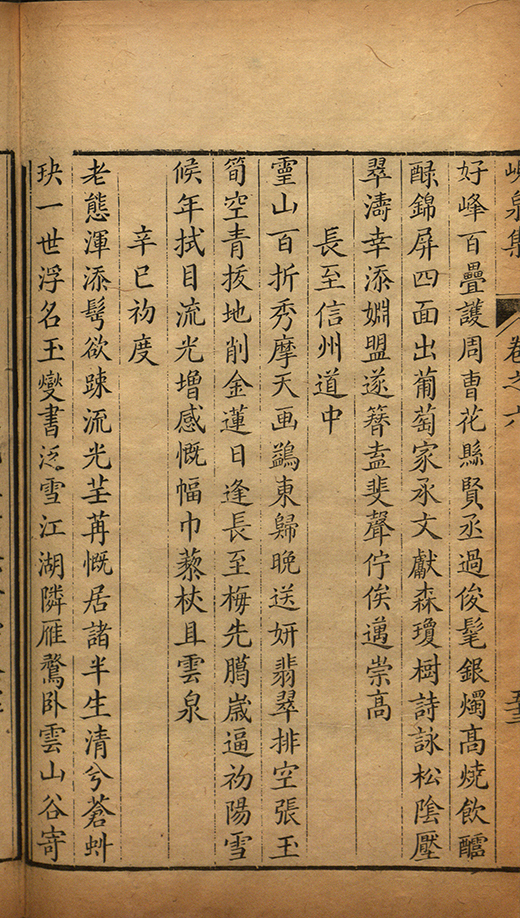 峴泉集 卷之六 五三
好峰百疊護周曺花縣賢丞過俊髦銀燭高燒飲醽
醁錦屏四面出葡萄家承文獻森瓊樹詩詠松陰壓
翠濤幸添婣盟遂簪盍斐聲佇俟邁崇高
長至信州道中
靈山百折秀摩天画鷁東歸晚送妍翡翠排空張玉
筍空青拔地削金蓮日逢長至梅先臈歳逼初陽雪
候年拭目流光增感慨幅巾藜杖且雲泉
辛巳初度
老態渾添髩欲踈流光荏苒慨居諸半生清兮蒼虯
玦一世浮名玉燮書泛雪江湖隣雁鶩卧雲山谷寄